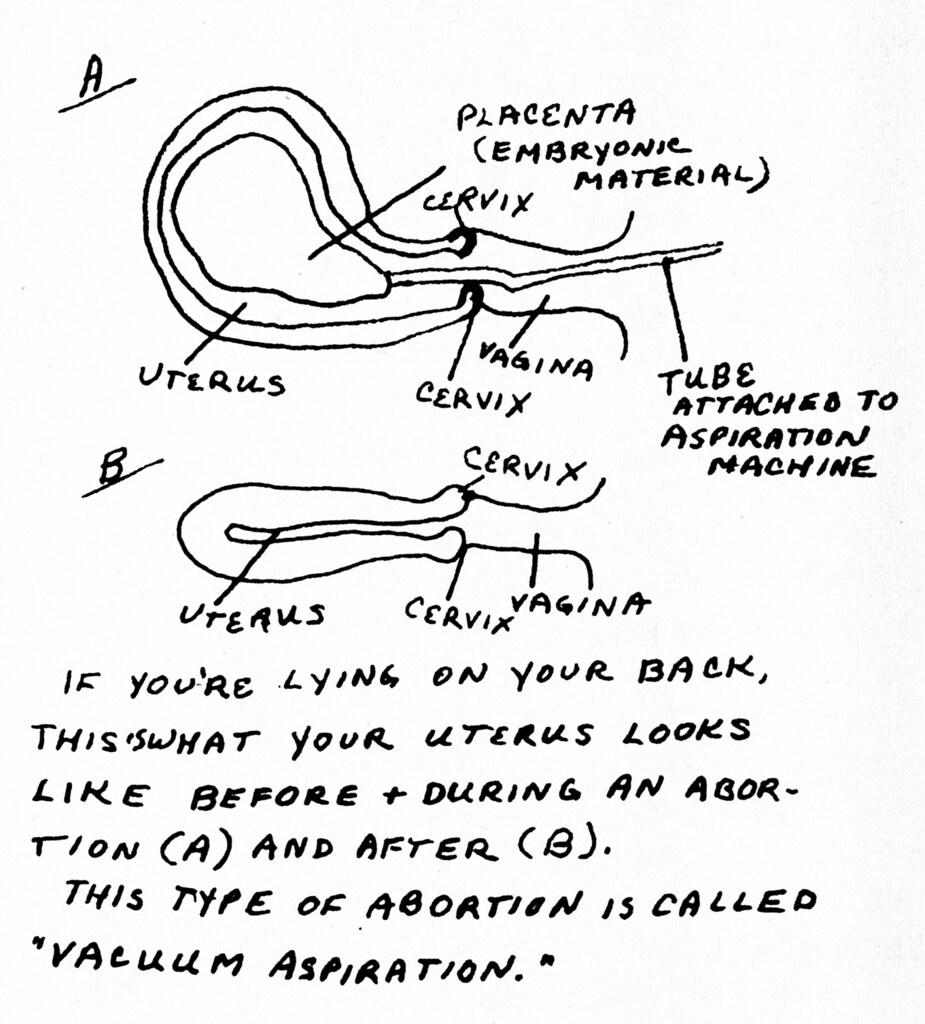 A
PLACENTA
(EMBRYONIC
MATERIAL)
CERVIX
UTERUS
CERVIX
VAGINA
TUBE
ATTACHED TO
ASPIRATION
MACHINE
B
CERVIX
UTERUS
CERVIX
VAGINA
IF YOU'RE LYING ON YOUR BACK,
THIS'S WHAT YOUR UTERUS LOOKS
LIKE BEFORE + DURING AN ABOR-
TION (A) AND AFTER (B).
THIS TYPE OF ABORTION IS CALLED
"VACUUM ASPIRATION."